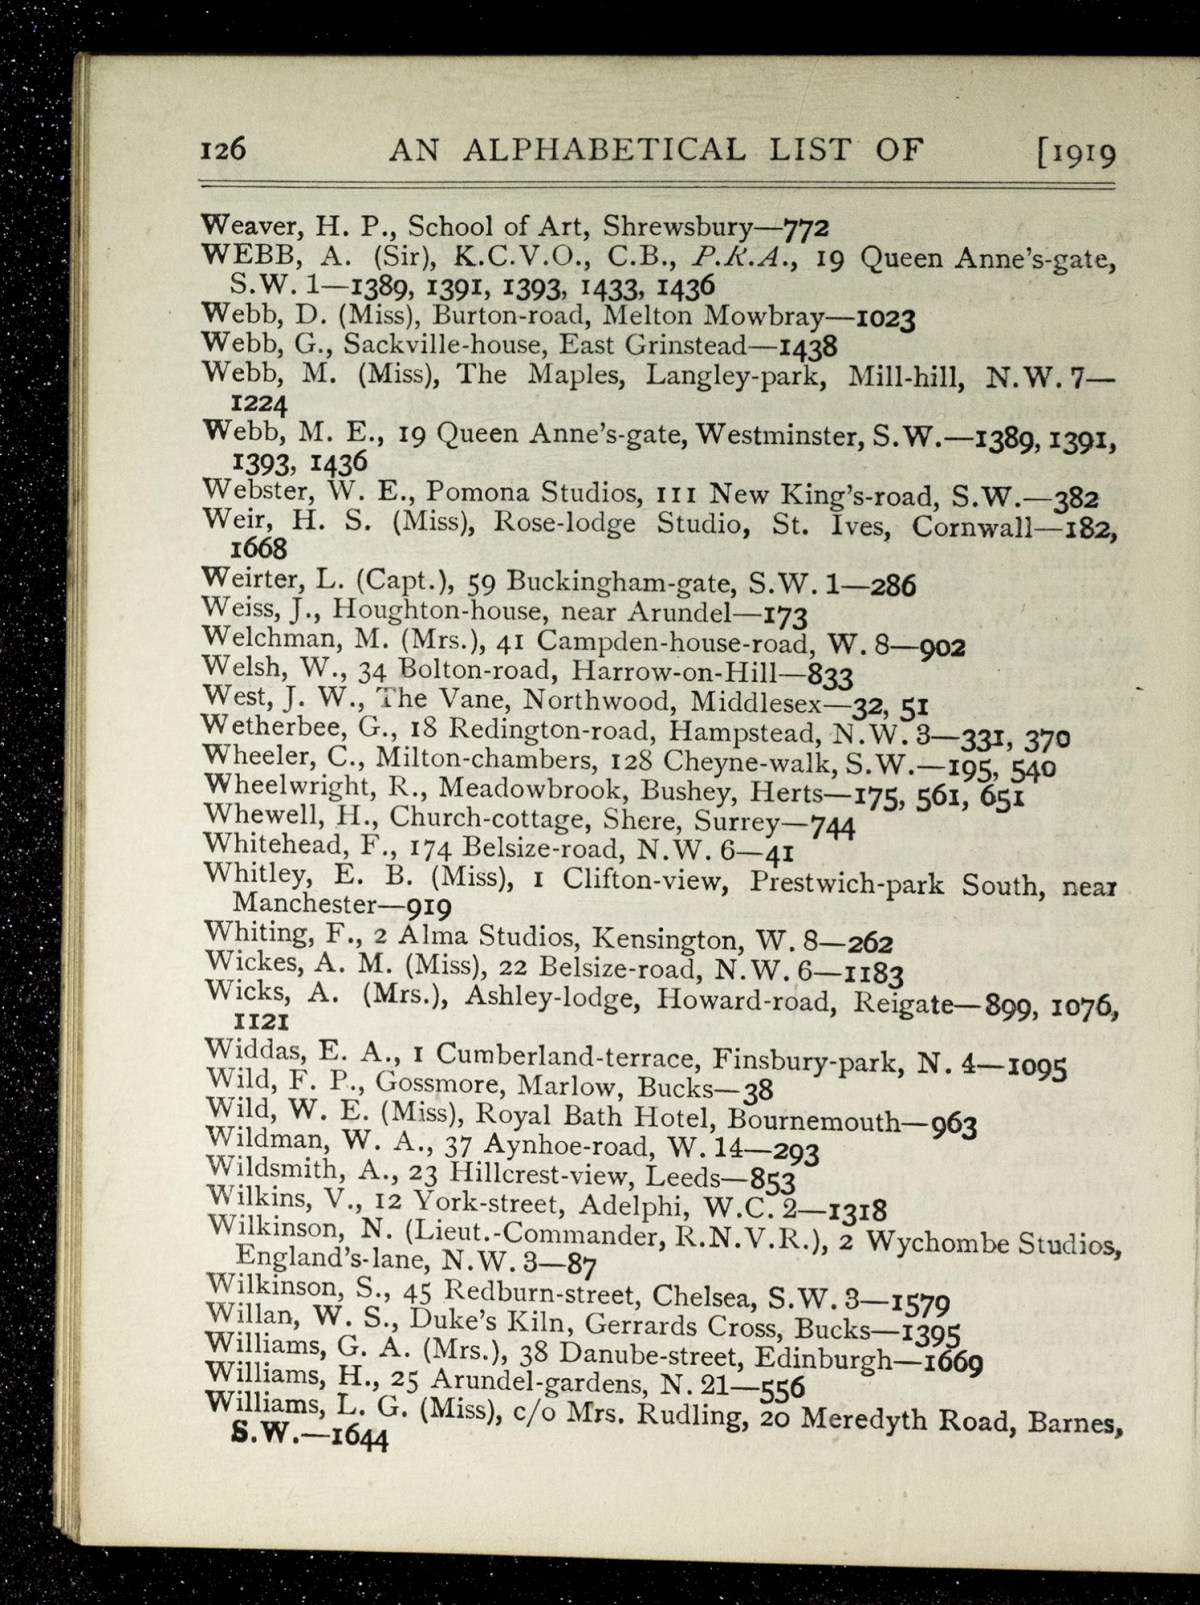 126 AN ALPHABETICAL LIST OF [1919
Weaver, H. P., School of Art, Shrewsbury—772
WEBB, A. (Sir), K.C.V.O., C.B., P.R.A., 19 Queen Anne's-gate,
S.W. 1—1389, 1391, 1393, 1433, 1436
Webb, D. (Miss), Burton-road, Melton Mowbray—1023
Webb, G., Sackville-house, East Grinstead—1438
Webb, M. (Miss), The Maples, Langley-park, Mill-hill, N.W. 7—
1224
Webb, M. E., 19 Queen Anne's-gate, Westminster, S.W.—1389, 1391,
1393, 1436
Webster, W. E., Pomona Studios, 111 New King's-road, S.W.—382
Weir, H. S. (Miss), Rose-lodge Studio, St. Ives, Cornwall—182,
1668
Weirter, L. (Capt.), 59 Buckingham-gate, S.W. 1—286
Weiss, J., Houghton-house, near Arundel—173
Welchman, M. (Mrs.), 41 Campden-house-road, W. 8—902
Welsh, W., 34 Bolton-road, Harrow-on-Hill—833
West, J. W., The Vane, Northwood, Middlesex—32, 51
Wetherbee, G., 18 Redington-road, Hampstead, N.W. 3—331, 370
Wheeler, C., Milton-chambers, 128 Cheyne-walk, S.W.—195, 540
Wheelwright, R., Meadowbrook, Bushey, Herts—175, 561, 651
Whewell, H., Church-cottage, Shere, Surrey—744
Whitehead, F., 174 Belsize-road, N.W. 6—41
Whitley, E. B. (Miss), 1 Clifton-view, Prestwich-park South, near
Manchester—919
Whiting, F., 2 Alma Studios, Kensington, W. 8—262
Wickes, A. M. (Miss), 22 Belsize-road, N.W. 6—1183
Wicks, A. (Mrs.), Ashley-lodge, Howard-road, Reigate—899, 1076,
1121
Widdas, E. A., 1 Cumberland-terrace, Finsbury-park, N. 4—1095
Wild, F. P., Gossmore, Marlow, Bucks—38
Wild, W. E. (Miss), Royal Bath Hotel, Bournemouth—963
Wildman, W. A., 37 Aynhoe-road, W. 14—293
Wildsmith, A., 23 Hillcrest-view, Leeds—853
Wilkins, V., 12 York-street, Adelphi, W.C. 2—1318
Wilkinson, N. (Lieut.-Commander, R.N.V.R.), 2 Wychombe Studios,
England's-lane, N.W. 3—87
Wilkinson, S., 45 Redburn-street, Chelsea, S.W. 3—1579
Willan, W. S., Duke's Kiln, Gerrards Cross, Bucks—1395
Williams, G. A. (Mrs.), 38 Danube-street, Edinburgh—1669
Williams, H., 25 Arundel-gardens, N. 21—556
Williams, L. G. (Miss), c/o Mrs. Rudling, 20 Meredyth Road, Barnes,
S.W.—1644